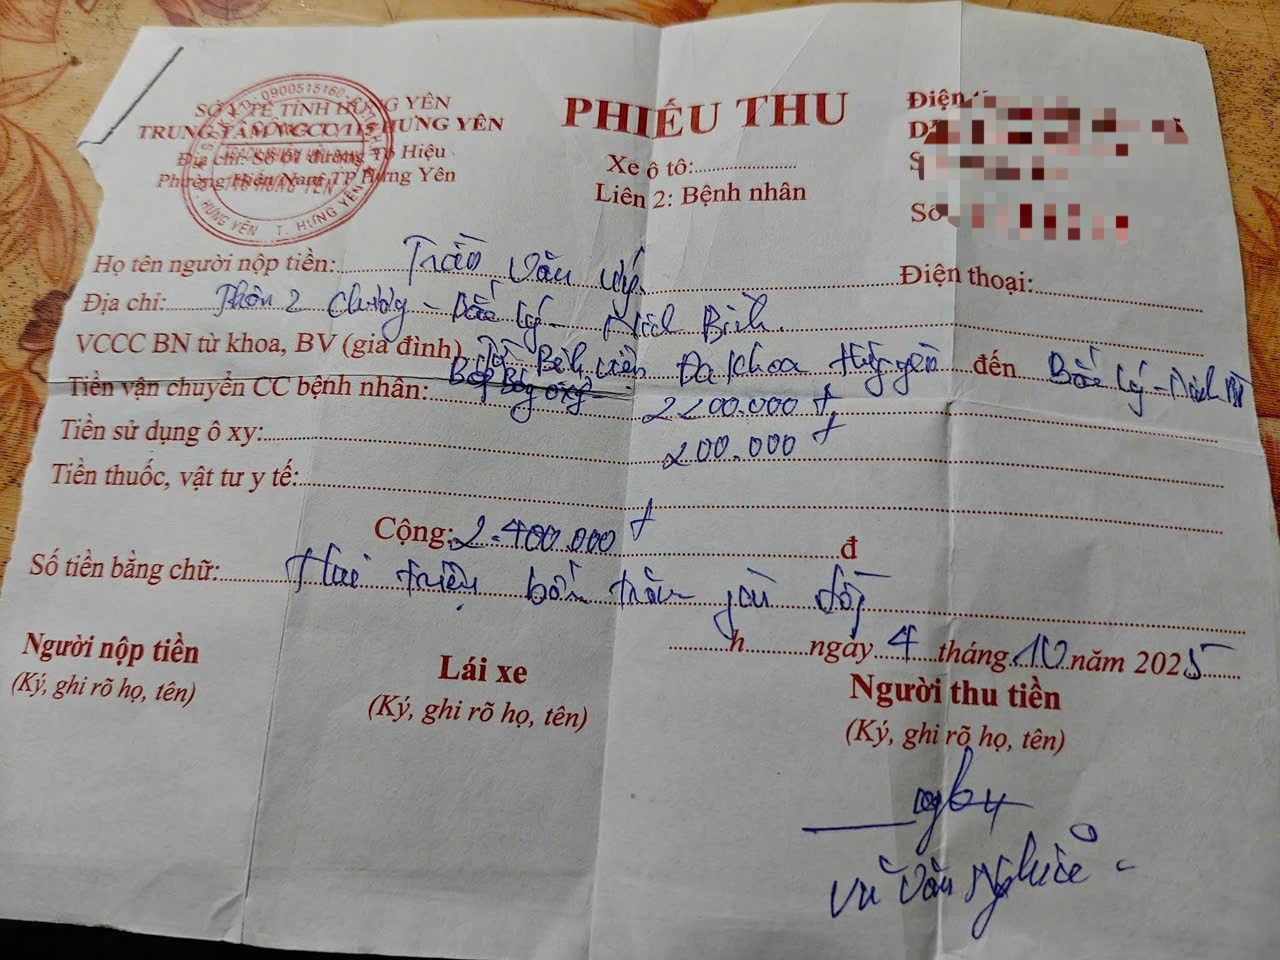 SỞ Y TẾ TỈNH HƯNG YÊN
TRUNG TÂM VCCC 115 HƯNG YÊN
Địa chỉ: Số 01 đường Tô Hiệu
Phường Hiến Nam, TP Hưng Yên
0900515160
HƯNG YÊN T. HƯNG YÊN
PHIẾU THU
Xe ô tô:
Liên 2: Bệnh nhân
Điện
Số
Họ tên người nộp tiền: Trần Văn Uý Điện thoại:
Địa chỉ: Thôn 2 Chương - Bắc Lý - Ninh Bình.
VCCC BN từ khoa, BV (gia đình) Từ Bệnh viện Đa Khoa Hưng Yên đến Bắc Lý - Ninh B
Tiền vận chuyển CC bệnh nhân: Bóp Bóng oxy 2200.000 đ
Tiền sử dụng ô xy: 200.000 đ
Tiền thuốc, vật tư y tế:
Cộng: 2.400.000 đ đ
Số tiền bằng chữ: Hai triệu bốn trăm ngàn đồng
h ngày 4 tháng 10 năm 2025
Người nộp tiền
(Ký, ghi rõ họ, tên)
Lái xe
(Ký, ghi rõ họ, tên)
Người thu tiền
(Ký, ghi rõ họ, tên)
Vũ Văn Nghiễ